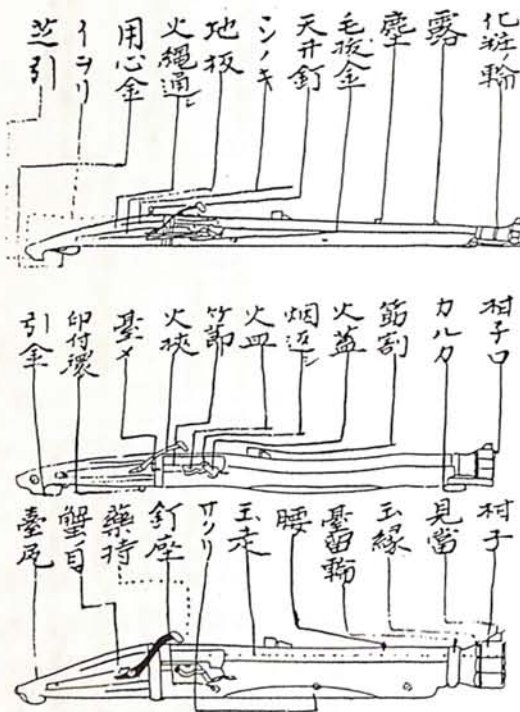 化粧ノ輪
露
塵
毛拔金
天井釘
シノキ
地板
火縄通シ
用心金
イヨリ
芝引
柑子口
カルカ
筋割
火蓋
烟返シ
火皿
竹節
火挾
臺〆
印付環
引金
柑子
見當
玉縁
臺留輪
腰
玉走
サソリ
釘座
藥持
蟹目
臺尻